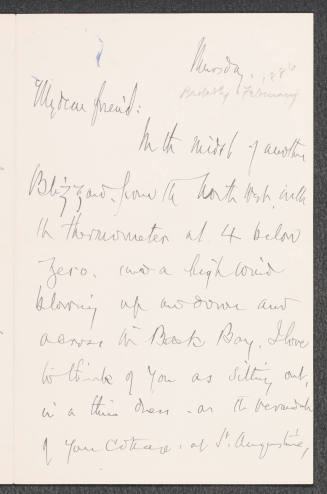 Thursday. 1886
Probably February
My dear friend:
In the midst of another
Blizzard, from the North West, with
the thermometer at 4 below
zero. and a high wind
blowing up and down and
across the Back Bay, I love
to think of you as sitting out,
in a thin dress - on the verandah
of your Cottage. at St. Augustine,